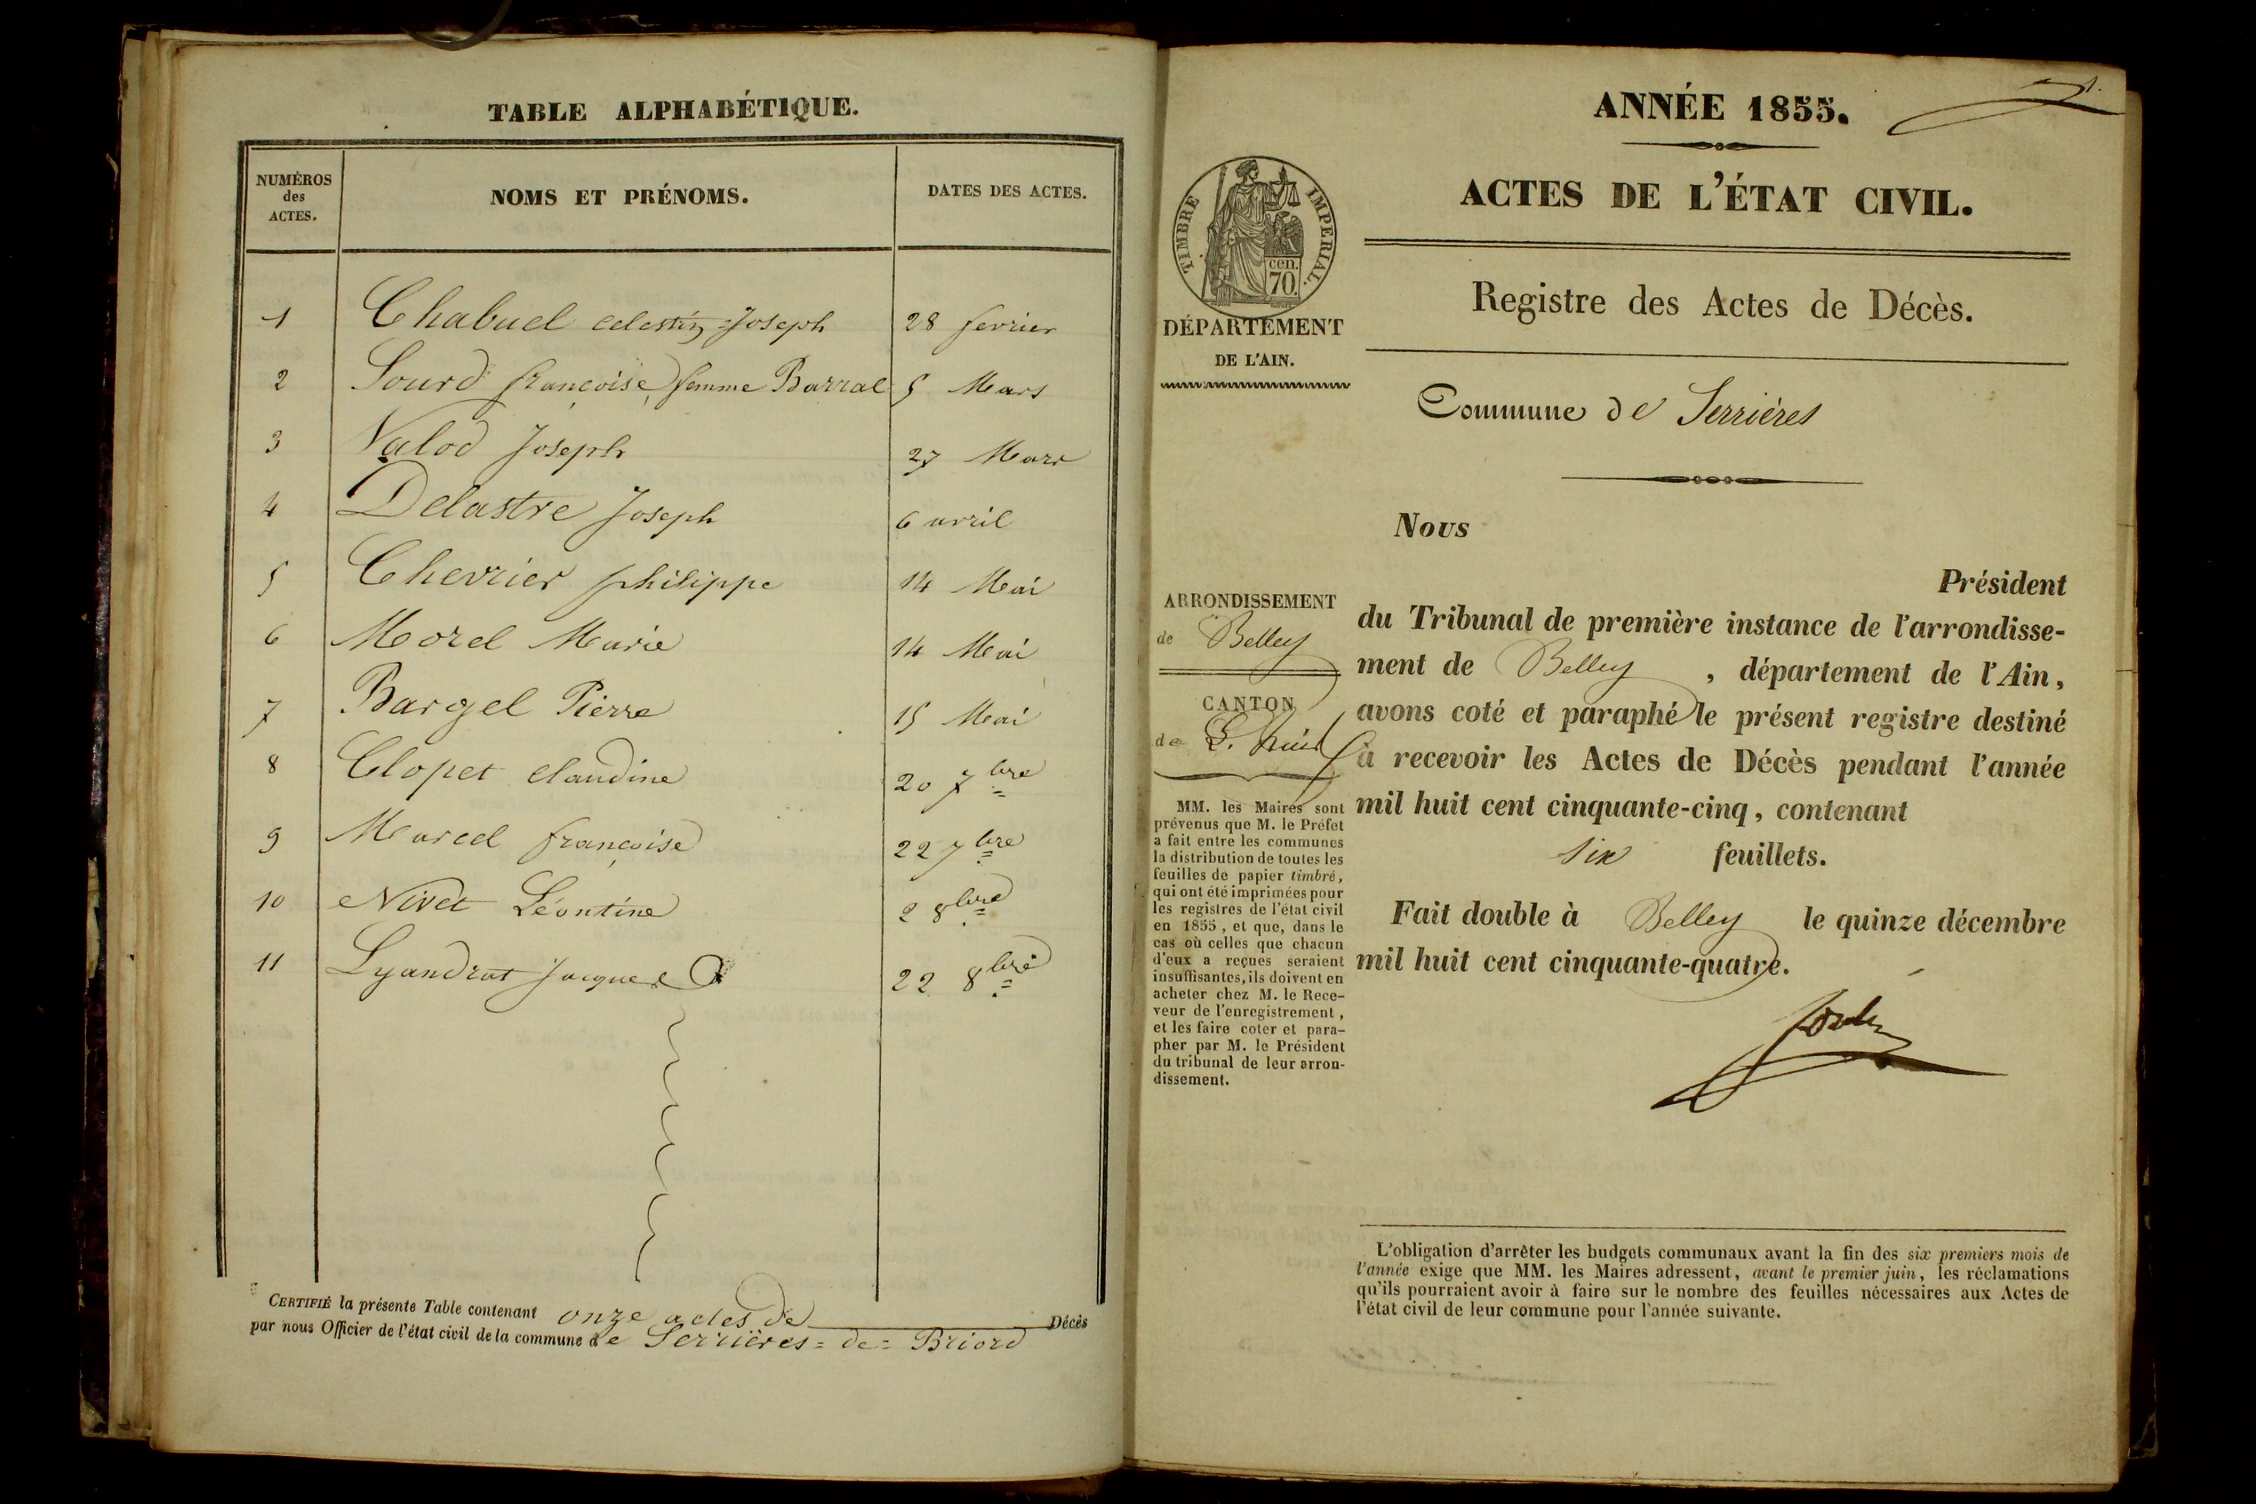 TABLE ALPHABÉTIQUE.
NUMÉROS des ACTES. NOMS ET PRÉNOMS. DATES DES ACTES.
1 Chabuel celestin=Joseph 28 fevrier
2 Sourd françoise, femme Barral 5 Mars
3 Valod Joseph 27 Mars
4 Delastre Joseph 6 avril
5 Chevrier philippe 14 Mai
6 Morel Marie 14 Mai
7 Bargel Pierre 15 Mai
8 Clopet claudine 20 7bre
9 Marcel françoise 22 7bre
10 Nivet Léontine 2 8bre
11 Lyandrat Jacques 22 8bre
CERTIFIÉ la présente Table contenant onze actes de Décès
par nous Officier de l'état civil de la commune de Serrières=de=Briord
1.
ANNÉE 1855.
ACTES DE L'ÉTAT CIVIL.
Registre des Actes de Décès.
TIMBRE IMPERIAL.
cen.
70.
DÉPARTEMENT
DE L'AIN.
Commune de Serrières
ARRONDISSEMENT
de Belley
CANTON
de
MM. les Maires sont
prévenus que M. le Préfet
a fait entre les communes
la distribution de toutes les
feuilles de papier timbré,
qui ont été imprimées pour
les registres de l'état civil
en 1855, et que, dans le
cas où celles que chacun
d'eux a reçues seraient
insuffisantes, ils doivent en
acheter chez M. le Rece-
veur de l'enregistrement,
et les faire coter et para-
pher par M. le Président
du tribunal de leur arron-
dissement.
Nous
Président
du Tribunal de première instance de l'arrondisse-
ment de Belley, département de l'Ain,
avons coté et paraphé le présent registre destiné
à recevoir les Actes de Décès pendant l'année
mil huit cent cinquante-cinq, contenant
six feuillets.
Fait double à Belley le quinze décembre
mil huit cent cinquante-quatre.
L'obligation d'arrêter les budgets communaux avant la fin des six premiers mois de
l'année exige que MM. les Maires adressent, avant le premier juin, les réclamations
qu'ils pourraient avoir à faire sur le nombre des feuilles nécessaires aux Actes de
l'état civil de leur commune pour l'année suivante.